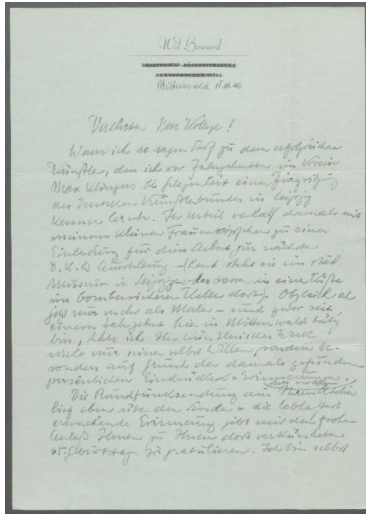 Wil Howard
Mittenwald
Verehrter Herr Kollege!
Wenn ich so sagen darf zu dem erfolgreichen
Künstler, den ich vor Jahrzehnten im Verein
Max Klingers bei Gelegenheit einer Jurysitzung
des Deutschen Künstlerbundes in Leipzig
kennen lernte. Ihr Urteil verhalf damals mir
meinem kleinen Frauenköpfchen zu einer
Einladung für dein Arbeit zur nächsten
D.K.B. Ausstellung – (heut steht sie im städt.
Museum in Leipzig – oder vorm in eine Kiste
im bombensicheren Keller dort). Obgleich ich
jetzt nur mehr als Maler – und zwar seit
einem Jahrzehnt hier in Mittenwald tätig
bin, habe ich Ihr künstlerisches Werk
nicht nur seiner selbst willen, sondern be-
sonders auf Grund der damals gefundenen
persönlichen Eindrücke
Die Rundfunksendung
lief eben über den Sender – die lebhaft
erwachende Erinnerung gibt mir den frohen
Anlaß Ihnen zu Ihrem dort verkündeten
65. Geburtstage zu gratulieren. Ich bin selbst